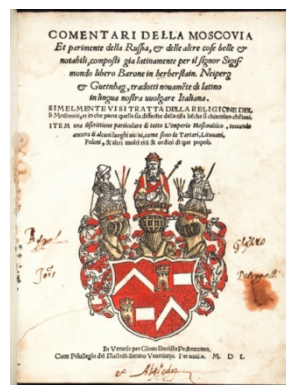 COMENTARI DELLA MOSCOVIA
Et parimente della Russia, & delle altre cose belle &
notabili, composti gia latinamente per il signor Sigis
mondo libero Barone in herberstain, Neiperg
& Guetnhag, tradotti nouamẽte di latino
in lingua nostra uuolgare Italiana.
SIMELMENTE VI SI TRATTA DELLA RELIGIONE DEL
li Moscouiti, et in che parte quella sia differente della nostra
ITEM una discrittione particolare di tutto L'imperio Moscouitico, toccando
ancora di alcuni luoghi uicini, come sono de Tartari, Lituani,
Poloni, & altri molti riti & ordini di que popoli.
In Venetia per Gioan Battista Pedrezzano.
Cum Priuilegio del Illustriss. Senato Venetiano. Per anni.x. M. D L.